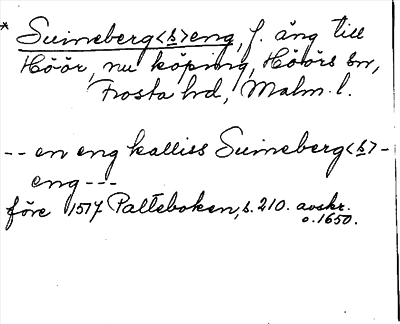 * Suineberg<s>eng, f. äng till
Höör, nu köping, Höörs sn,
Frosta hd, Malm. l.
-- en eng kalliss Suineberg<s>-
eng ---
före 1517 Palteboken, s. 210. avskr.
c. 1650.